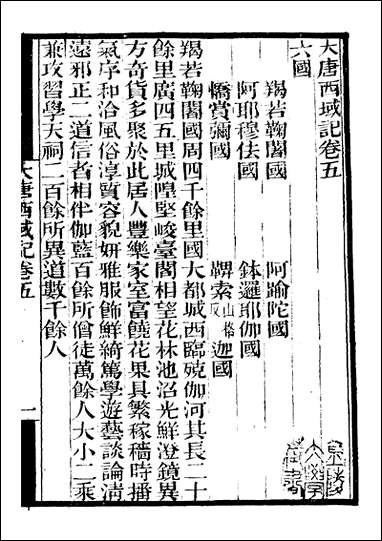 大唐西域記卷五
六國
羯若鞠闍國 阿踰陀國
阿耶穆佉國 鉢邏耶伽國
憍賞彌國 鞞索山格反迦國
羯若鞠闍國周四千餘里國大都城西臨殑伽河其長二十
餘里廣四五里城隍堅峻臺閣相望花林池沼光鮮澄鏡異
方奇貨多聚於此居人豐樂家室富饒花果具繁稼穡時播
氣序和洽風俗淳質容貌妍雅服飾鮮綺篤學遊藝談論清
遠邪正二道信者相伴伽藍百餘所僧徒萬餘人大小二乘
兼攻習學天祠二百餘所異道數千餘人
大唐西域記卷五 一